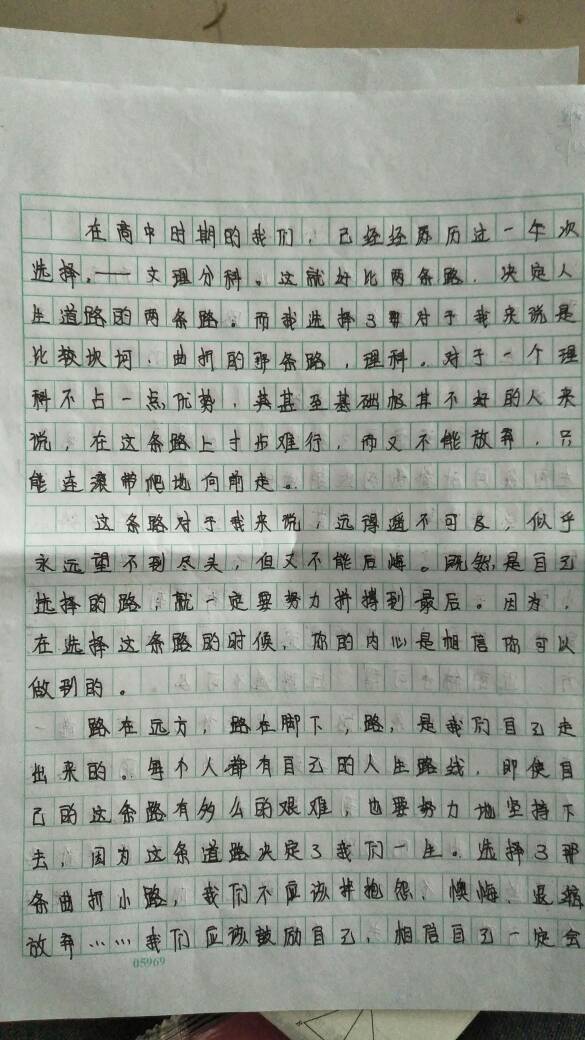 在高中时期的我们，已经经历过一次
选择，——文理分科。这就好比两条路，决定人
生道路的两条路。而我选择了要对于我来说是
比较坎坷、曲折的那条路，理科。对于一个理
科不占一点优势，甚至基础极其不好的人来
说，在这条路上寸步难行，而又不能放弃，只
能连滚带爬地向前走。
这条路对于我来说，远得遥不可及，似乎
永远望不到尽头，但又不能后悔。既然是自己
选择的路，就一定要努力拼搏到最后。因为，
在选择这条路的时候，你的内心是相信你可以
做到的。
路在远方，路在脚下，路，是我们自己走
出来的。每个人都有自己的人生路线，即使自
己的这条路有多么的艰难，也要努力地坚持下
去，因为这条道路决定了我们一生。选择了那
条曲折小路，我们不应该抱怨、懊悔、退缩
放弃……我们应该鼓励自己，相信自己一定会
05969